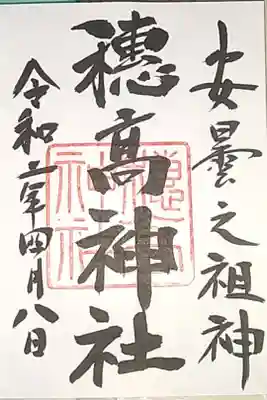 安曇之祖神
穂高神社
令和六年四月八日
穂高神社